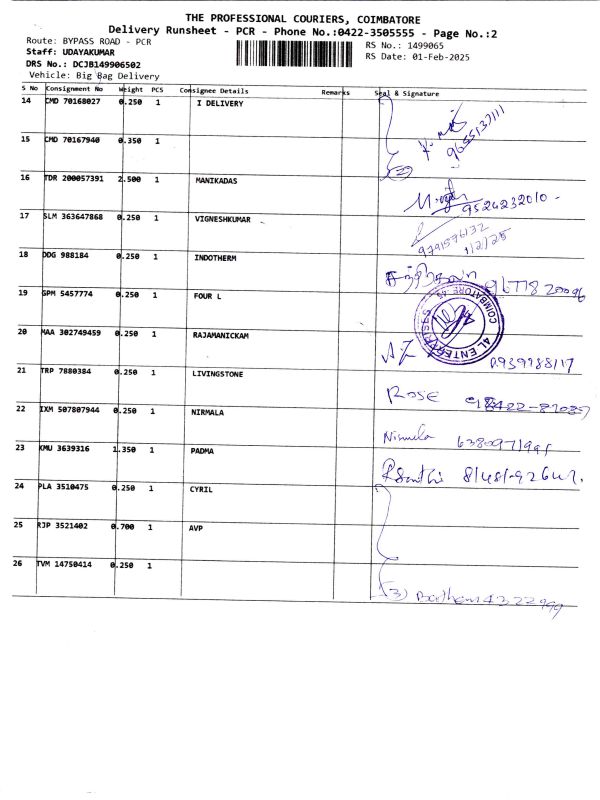 THE PROFESSIONAL COURIERS, COIMBATORE
Delivery Runsheet - PCR - Phone No.:0422-3505555 - Page No.:2
Route: BYPASS ROAD - PCR RS No.: 1499065
Staff: UDAYAKUMAR RS Date: 01-Feb-2025
DRS No.: DCJB149906502
Vehicle: Big Bag Delivery
S No Consignment No Weight PCS Consignee Details Remarks Seal & Signature
14 CMD 70168027 0.250 1 I DELIVERY
15 CMD 70167940 0.350 1
16 TDR 200057391 2.500 1 MANIKADAS 9524232010
17 SLM 363647868 0.250 1 VIGNESHKUMAR 9791576132
1/2/25
18 DDG 988184 0.250 1 INDOTHERM
19 GPM 5457774 0.250 1 FOUR L
20 MAA 302749459 0.250 1 RAJAMANICKAM
21 TRP 7880384 0.250 1 LIVINGSTONE ROSE
22 IXM 507807944 0.250 1 NIRMALA Nirmala
23 KMU 3639316 1.350 1 PADMA R Santhi
24 PLA 3510475 0.250 1 CYRIL
25 RJP 3521402 0.700 1 AVP
26 TVM 14750414 0.250 1 3